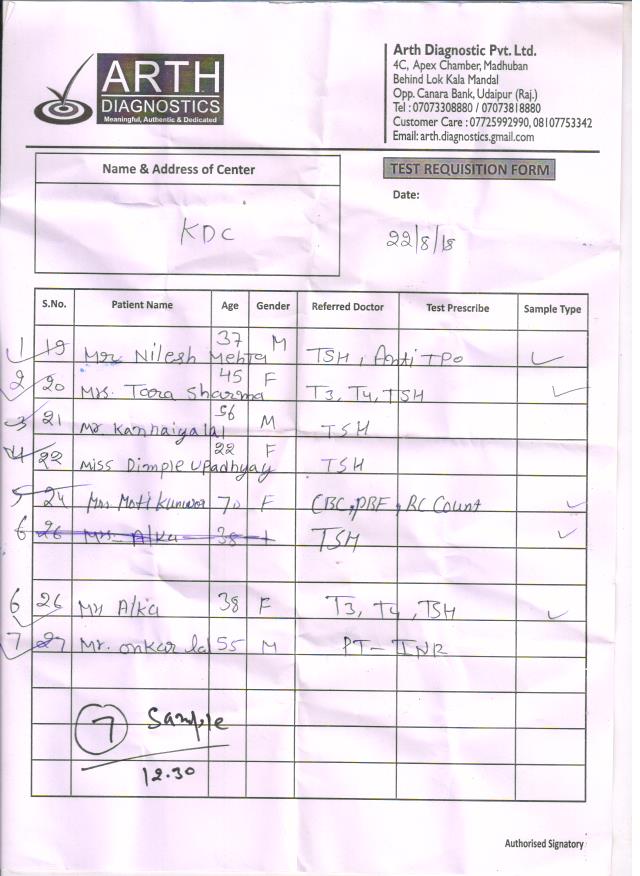 ARTH
DIAGNOSTICS
Meaningful, Authentic & Dedicated
Arth Diagnostic Pvt. Ltd.
4C, Apex Chamber, Madhuban
Behind Lok Kala Mandal
Opp. Canara Bank, Udaipur (Raj.)
Tel : 07073308880 / 07073818880
Customer Care : 07725992990, 08107753342
Email: arth.diagnostics.gmail.com
Name & Address of Center
TEST REQUISITION FORM
Date:
KDC
22/8/18
S.No. Patient Name Age Gender Referred Doctor Test Prescribe Sample Type
1 19 Mr Nilesh Mehta 37 M TSH, Anti TPO
2 20 Mrs. Tara Sharma 45 F T3, T4, TSH
3 21 Mr. Kanhaiyalal 56 M TSH
4 22 Miss Dimple Upadhyay 22 F TSH
5 24 Mrs Moti Kunwar 70 F CBC, PBF, RC Count
6 26 Mrs. Alka 38 TSH
6 26 Mrs Alka 38 F T3, T4, TSH
7 27 Mr. onkar lal 55 M PT-INR
7 Sample
12.30
Authorised Signatory